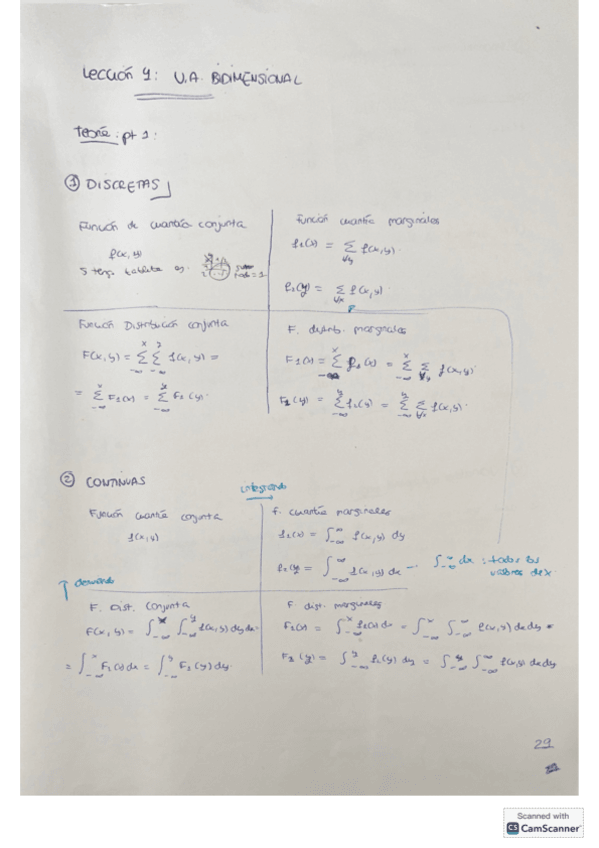 Lección 4: V.A. BIDIMENSIONAL
Teoría: pt 1:
① DISCRETAS
Función de cuantía conjunta
f(x,y)
función cuantía marginales
f₁(x) = ∑∀y f(x,y).
f₂(y) = ∑∀x f(x,y).
Función Distribución conjunta
F(x,y) = ∑ˣ₋∞ ∑ʸ₋∞ f(x,y) =
= ∑ˣ₋∞ F₁(x) = ∑ʸ₋∞ F₂(y).
F. distrib. marginales
F₁(x) = ∑ˣ₋∞ f₁(x) = ∑ˣ₋∞ ∑∀y f(x,y).
F₂(y) = ∑ʸ₋∞ f₂(y) = ∑ʸ₋∞ ∑∀x f(x,y).
② CONTINUAS
integrando
Función cuantía conjunta
f(x,y)
f. cuantía marginales
f₁(x) = ∫₋∞^∞ f(x,y) dy
f₂(y = ∫₋∞^∞ f(x,y) dx
∫₋∞^∞ dx : todos los
valores de x.
derivando
F. Dist. Conjunta
F(x,y) = ∫₋∞^x ∫₋∞^y f(x,y) dy dx =
= ∫₋∞^x F₁(x) dx = ∫₋∞^y F₂(y) dy.
F dist. marginales
F₁(x) = ∫₋∞^x f₁(x) dx = ∫₋∞^x ∫₋∞^∞ f(x,y) dx dy
F₂(y) = ∫₋∞^y f₂(y) dy = ∫₋∞^y ∫₋∞^∞ f(x,y) dx dy
29
Scanned with
CS CamScanner